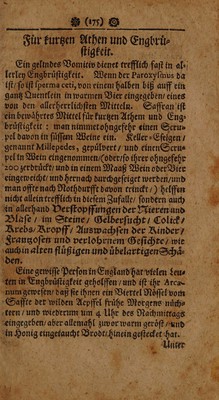 (175)
Für kurtzen Athen und Engbrü-
stigkeit.
Ein gelindes Vomitiv dienet trefflich fast in al-
lerley Engbrüstigkeit. Wenn der Paroxysmus da
ist/ so ist sperma ceti, von einem halben biß auff ein
gantz Quentlein in warmen Bier eingegeben/ eines
von den allerherrlichsten Mitteln. Saffran ist
ein bewährtes Mittel für kurtzen Athem und Eng-
brüstigkeit: man nimmet ohngefehr einen Scru-
pel davon in süssem Weine ein. Keller-Eselgen/
genannt Millepedes, gepülvert und einen Scru-
pel in Wein eingenommen/ (oder/ so ihrer ohngefehr
200 zerdrückt/ und in einem Maaß Wein oder Bier
eingeweicht/ und hernach durchgeseiget werden/ und
man offte nach Nothdurfft davon trinckt/) helffen
nicht allein trefflich in diesem Zufalle/ sondern auch
in allerhand Verstopffungen der Nieren und
Blase/ im Steine/ Gelbersucht/ Colick/
Krebs/ Kropff/ Auswachsen der Kinder/
Frantzosen und verlohrnem Gesichte/ wie
auch in alten flüßigen und übelartigen Schä-
den.
Eine gewisse Person in England hat vielen Leu-
ten in Engbrüstigkeit geholffen/ und ist ihr Arca-
num gewesen/ daß sie ihnen ein Viertel Nössel vom
Saffte der wilden Aepffel frühe Morgens nüch-
tern/ und wiederum um 4 Uhr des Nachmittags
eingegeben/ aber allemahl zuvor warm geröst/ und
in Honig eingetaucht Brodt hinein gestecket hat.
Unter